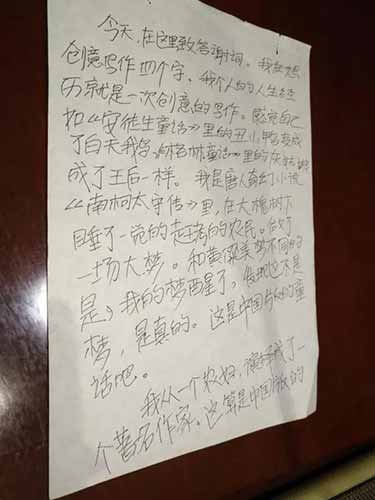 今天,在这里致答谢词。我在想
创意写作四个字,我个人的人生经
历就是一次创意的写作。感觉自己
和《安徒生童话》里的丑小鸭变成
了白天鹅,格林童话里的灰姑娘
成了王后一样。我是唐人奇幻小说
《南柯太守传》里,在大槐树下
睡了一觉的赶考的农民。做了
一场大梦。和黄粱美梦不同的
是,我的梦醒了,发现这不是
梦,是真的。这是中国的童
话吧。
我从一个农妇,
个著名作家,这算是中国的